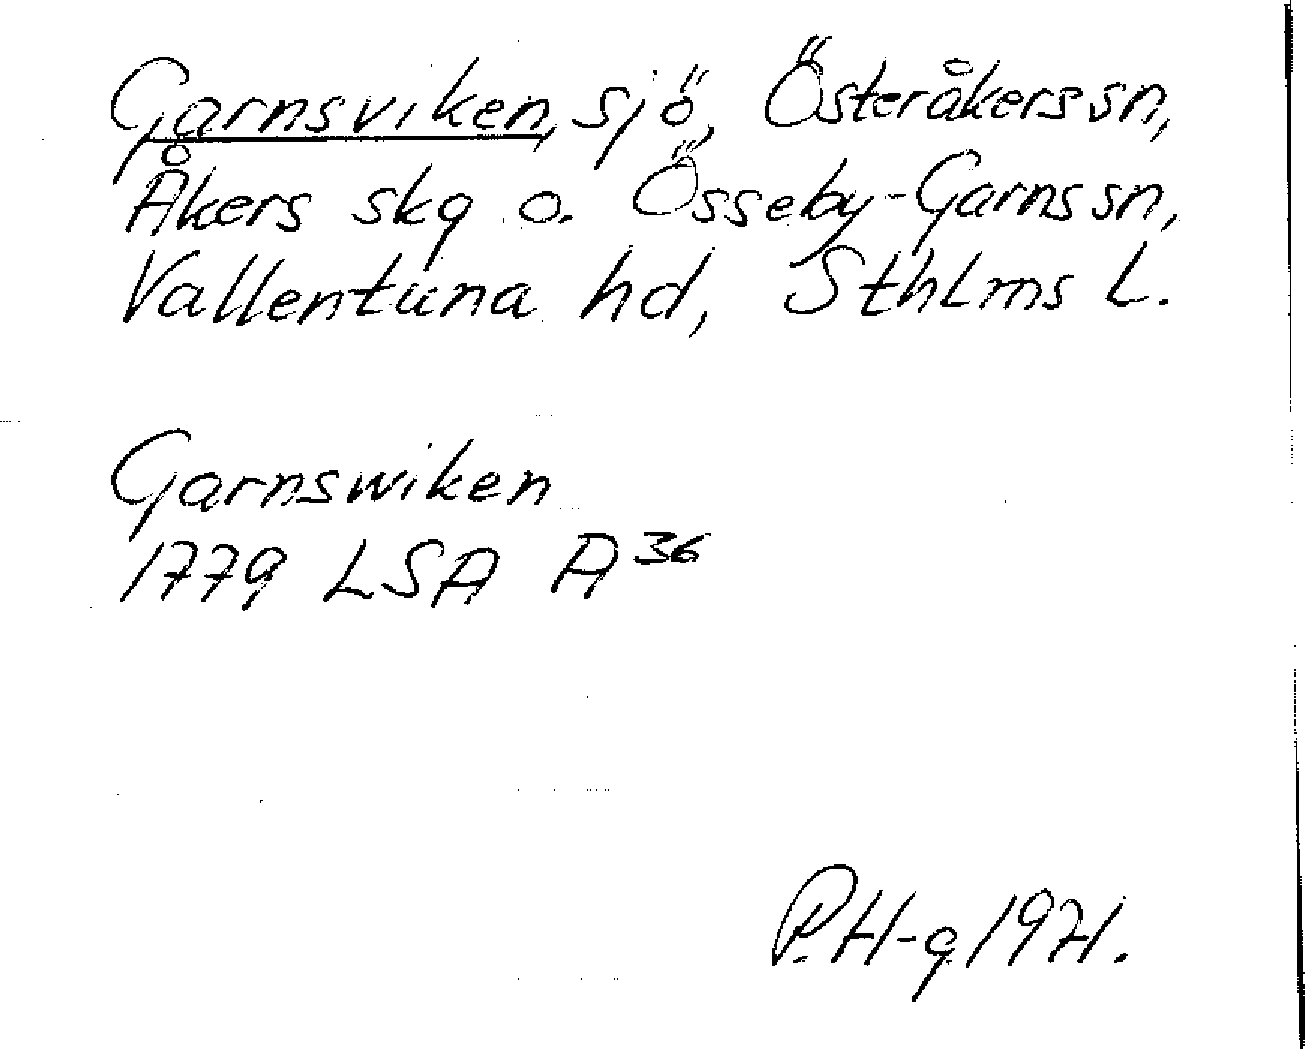 Garnsviken, sjö, Österåkers sn,
Åkers skg o. Össeby-Garns sn,
Vallentuna hd, Sthlms L.
Garnswiken
1779 LSA A 36
P.H-g. 1971.